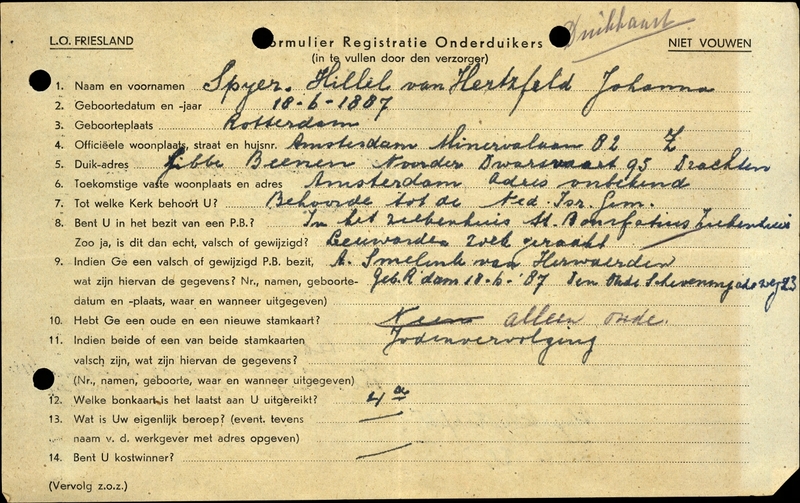 Duikkaart
L.O. FRIESLAND
Formulier Registratie Onderduikers
NIET VOUWEN
(in te vullen door den verzorger)
1. Naam en voornamen Spyer. Hillel van Hertzfeld Johanna
2. Geboortedatum en -jaar 18-6-1887
3. Geboorteplaats Rotterdam
4. Officiëele woonplaats, straat en huisnr. Amsterdam Minervalaan 82 Z
5. Duik-adres Sibbe Beenen Noorder Dwarsvaart 95 Drachten
6. Toekomstige vaste woonplaats en adres Amsterdam adres onbekend
7. Tot welke Kerk behoort U? Behoorde tot de Ned. Isr. Gem.
8. Bent U in het bezit van een P.B.? In het ziekenhuis St. Bonifatius Ziekenhuis
Zoo ja, is dit dan echt, valsch of gewijzigd? Leeuwarden zoek geraakt
9. Indien Ge een valsch of gewijzigd P.B. bezit, A. Smelink van Herwaerden
wat zijn hiervan de gegevens? Nr., namen, geboorte- Geb. R'dam 18-6-'87 Den Oude Scheveningsche weg 23
datum en -plaats, waar en wanneer uitgegeven)
10. Hebt Ge een oude en een nieuwe stamkaart? Neen alleen oude.
11. Indien beide of een van beide stamkaarten Jodenvervolging
valsch zijn, wat zijn hiervan de gegevens?
(Nr., namen, geboorte, waar en wanneer uitgegeven)
12. Welke bonkaart is het laatst aan U uitgereikt? 4a
13. Wat is Uw eigenlijk beroep? (event. tevens
naam v. d. werkgever met adres opgeven)
14. Bent U kostwinner?
(Vervolg z.o.z.)